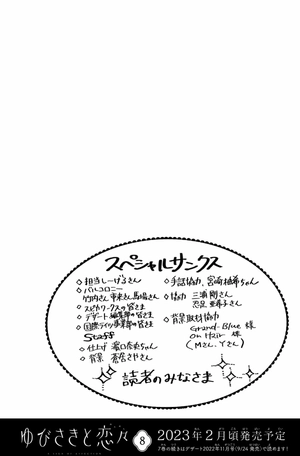 スペシャルサンクス
◇担当しーげるさん
◇バルコロニー
竹内さん 市来さん 馬場さん
◇スピカワークスの皆さま
◇デザート編集部の皆さま
◇国際ライツ事業部の皆さま
Staff
◇仕上げ
◇背景 蒼宮さやさん
◇手話協力 宮崎柚希ちゃん
◇協力 三浦剛さん
◇背景取材協力
Grand-Blue 様
On Hair 様
(Mさん、Yさん)
◇読者のみなさま
ゆびさきと恋々 8 2023年2月頃発売予定
7巻の続きはデザート2022年11月号(9/24発売)で読めます!